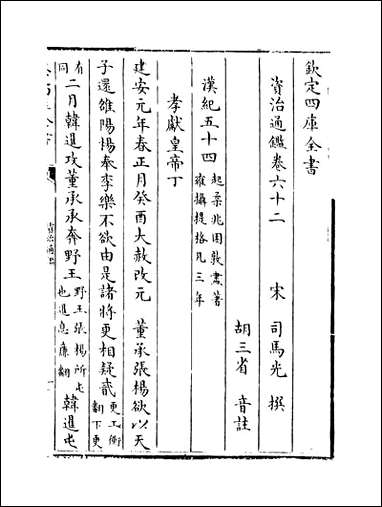 欽定四庫全書
資治通鑑卷六十二
宋 司馬光 撰
胡三省 音註
漢紀五十四
起柔兆困敦盡著
雍攝提格凡三年
孝獻皇帝丁
建安元年春正月癸酉大赦改元 董承張楊欲以天
子還雒陽楊奉李樂不欲由是諸將更相疑貳
更工衡
翻下更
有
同
二月韓暹攻董承承奔野王
野王張楊所屯
也暹息廉翻
韓暹屯
資治通鑑